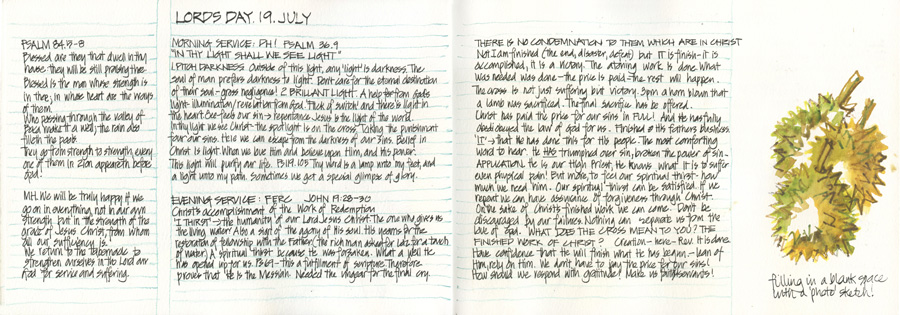 LORDS DAY. 19. JULY
PSALM 84.5-8
Blessed are they that dwell in thy
house they will be still praising thee.
Blessed is the man whose strength is
in thee, in whose heart are the ways
of them.
Who passing through the valley of
Baca make it a well; the rain also
filleth the pools.
They go from strength to strength, every
one of them in Zion appeareth before
God!
MH. We will be truly happy if we
go on in everything, not in our own
strength but in the strength of the
grace of Jesus Christ, from whom
all our sufficiency is.
We return to the
strengthen ourselves in the Lord our
God for service and suffering.
MORNING SERVICE: PH! PSALM 36.9
"IN THY LIGHT SHALL WE SEE LIGHT"
1. PITCH DARKNESS: Outside of this light, any "light" is darkness. The
soul of man prefers darkness to light. Don't care for the eternal destination
of their soul - gross negligence! 2 BRILLIANT LIGHT: A help for from God's
light - illumination/revelation from God. Flick of switch and there is light in
the heart. Eye feels our sin -> repentance. Jesus is the light of the world.
In thy light we see Christ - the spotlight is on the cross. Taking the punishment
for our sins. How we can escape from the darkness of our sins. Belief in
Christ is light. What we love Him and believe upon Him, and His power.
This light will purify our life. PS 119.105 Thy word is a lamp unto my feet, and
a light unto my path. Sometimes we get a special glimpse of glory.
EVENING SERVICE: PERC JOHN 19:28-30
Christ's accomplishment of the Work of Redemption
"I THIRST" -> the humanity of our Lord Jesus Christ. The one who gives us
the living water! Also a sign of the agony of His soul. His yearns for the
restoration of fellowship with the Father. (the rich man asked for Laz. for a touch
of water) A spiritual thirst because He was forsaken. What a well He
has opened up for us. Ps 69 - this a fulfillment of scripture. Therefore
proves that He is the Messiah. Needed the vinegar for the final cry.
THERE IS NO CONDEMNATION TO THEM WHICH ARE IN CHRIST
Not I am finished (the end, disaster, defeat) but IT is finish - it is
accomplished, it is a victory. The atoning work is done. What
was needed was done - the price is paid - the rest will happen.
The cross is not just suffering but victory. 3pm a horn blown that
a lamb was sacrificed. The final sacrifice has be offered.
Christ has paid the price for our sins in FULL! And He has fully
obeyed the law of God for us. Finished His Fathers business.
"IT'S" that He has done this for His people. The most comforting
word to hear. He HAS triumphed over sin, broken the power of sin -
APPLICATION: He is our High Priest. He knows what it is to suffer
even physical pain! But more, to feel our spiritual thirst - how
much we need Him. Our spiritual thirst can be satisfied. If we
repent we can have assurance of forgiveness through Christ -
On the basis of Christs finished work we can come. Don't be
discouraged by our failures. Nothing can separate us from the
love of God. WHAT DOES THE CROSS MEAN TO YOU? THE
FINISHED WORK OF CHRIST? Creation - here - Rev. It is done.
Have confidence that He will finish what He has begun - lean of
Him, rely on Him. We don't have to pay the price for our sins!
How should we respond with gratitude! Make us Thy servants!
filling in a blank space
with a photo sketch!